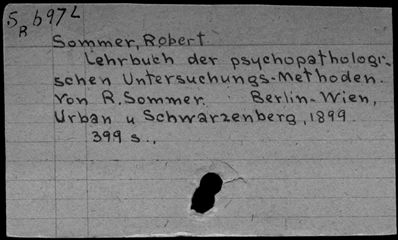 S b97L
R
Sommer, Robert
Lehrbuch der psychopathologi-
schen Untersuchungs-Methoden.
Von R. Sommer. Berlin-Wien,
Urban u Schwarzenberg, 1899.
399 s.,